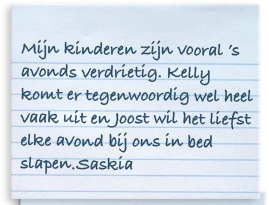 Mijn kinderen zijn vooral 's
avonds verdrietig. Kelly
komt er tegenwoordig wel heel
vaak uit en Joost wil het liefst
elke avond bij ons in bed
slapen.Saskia